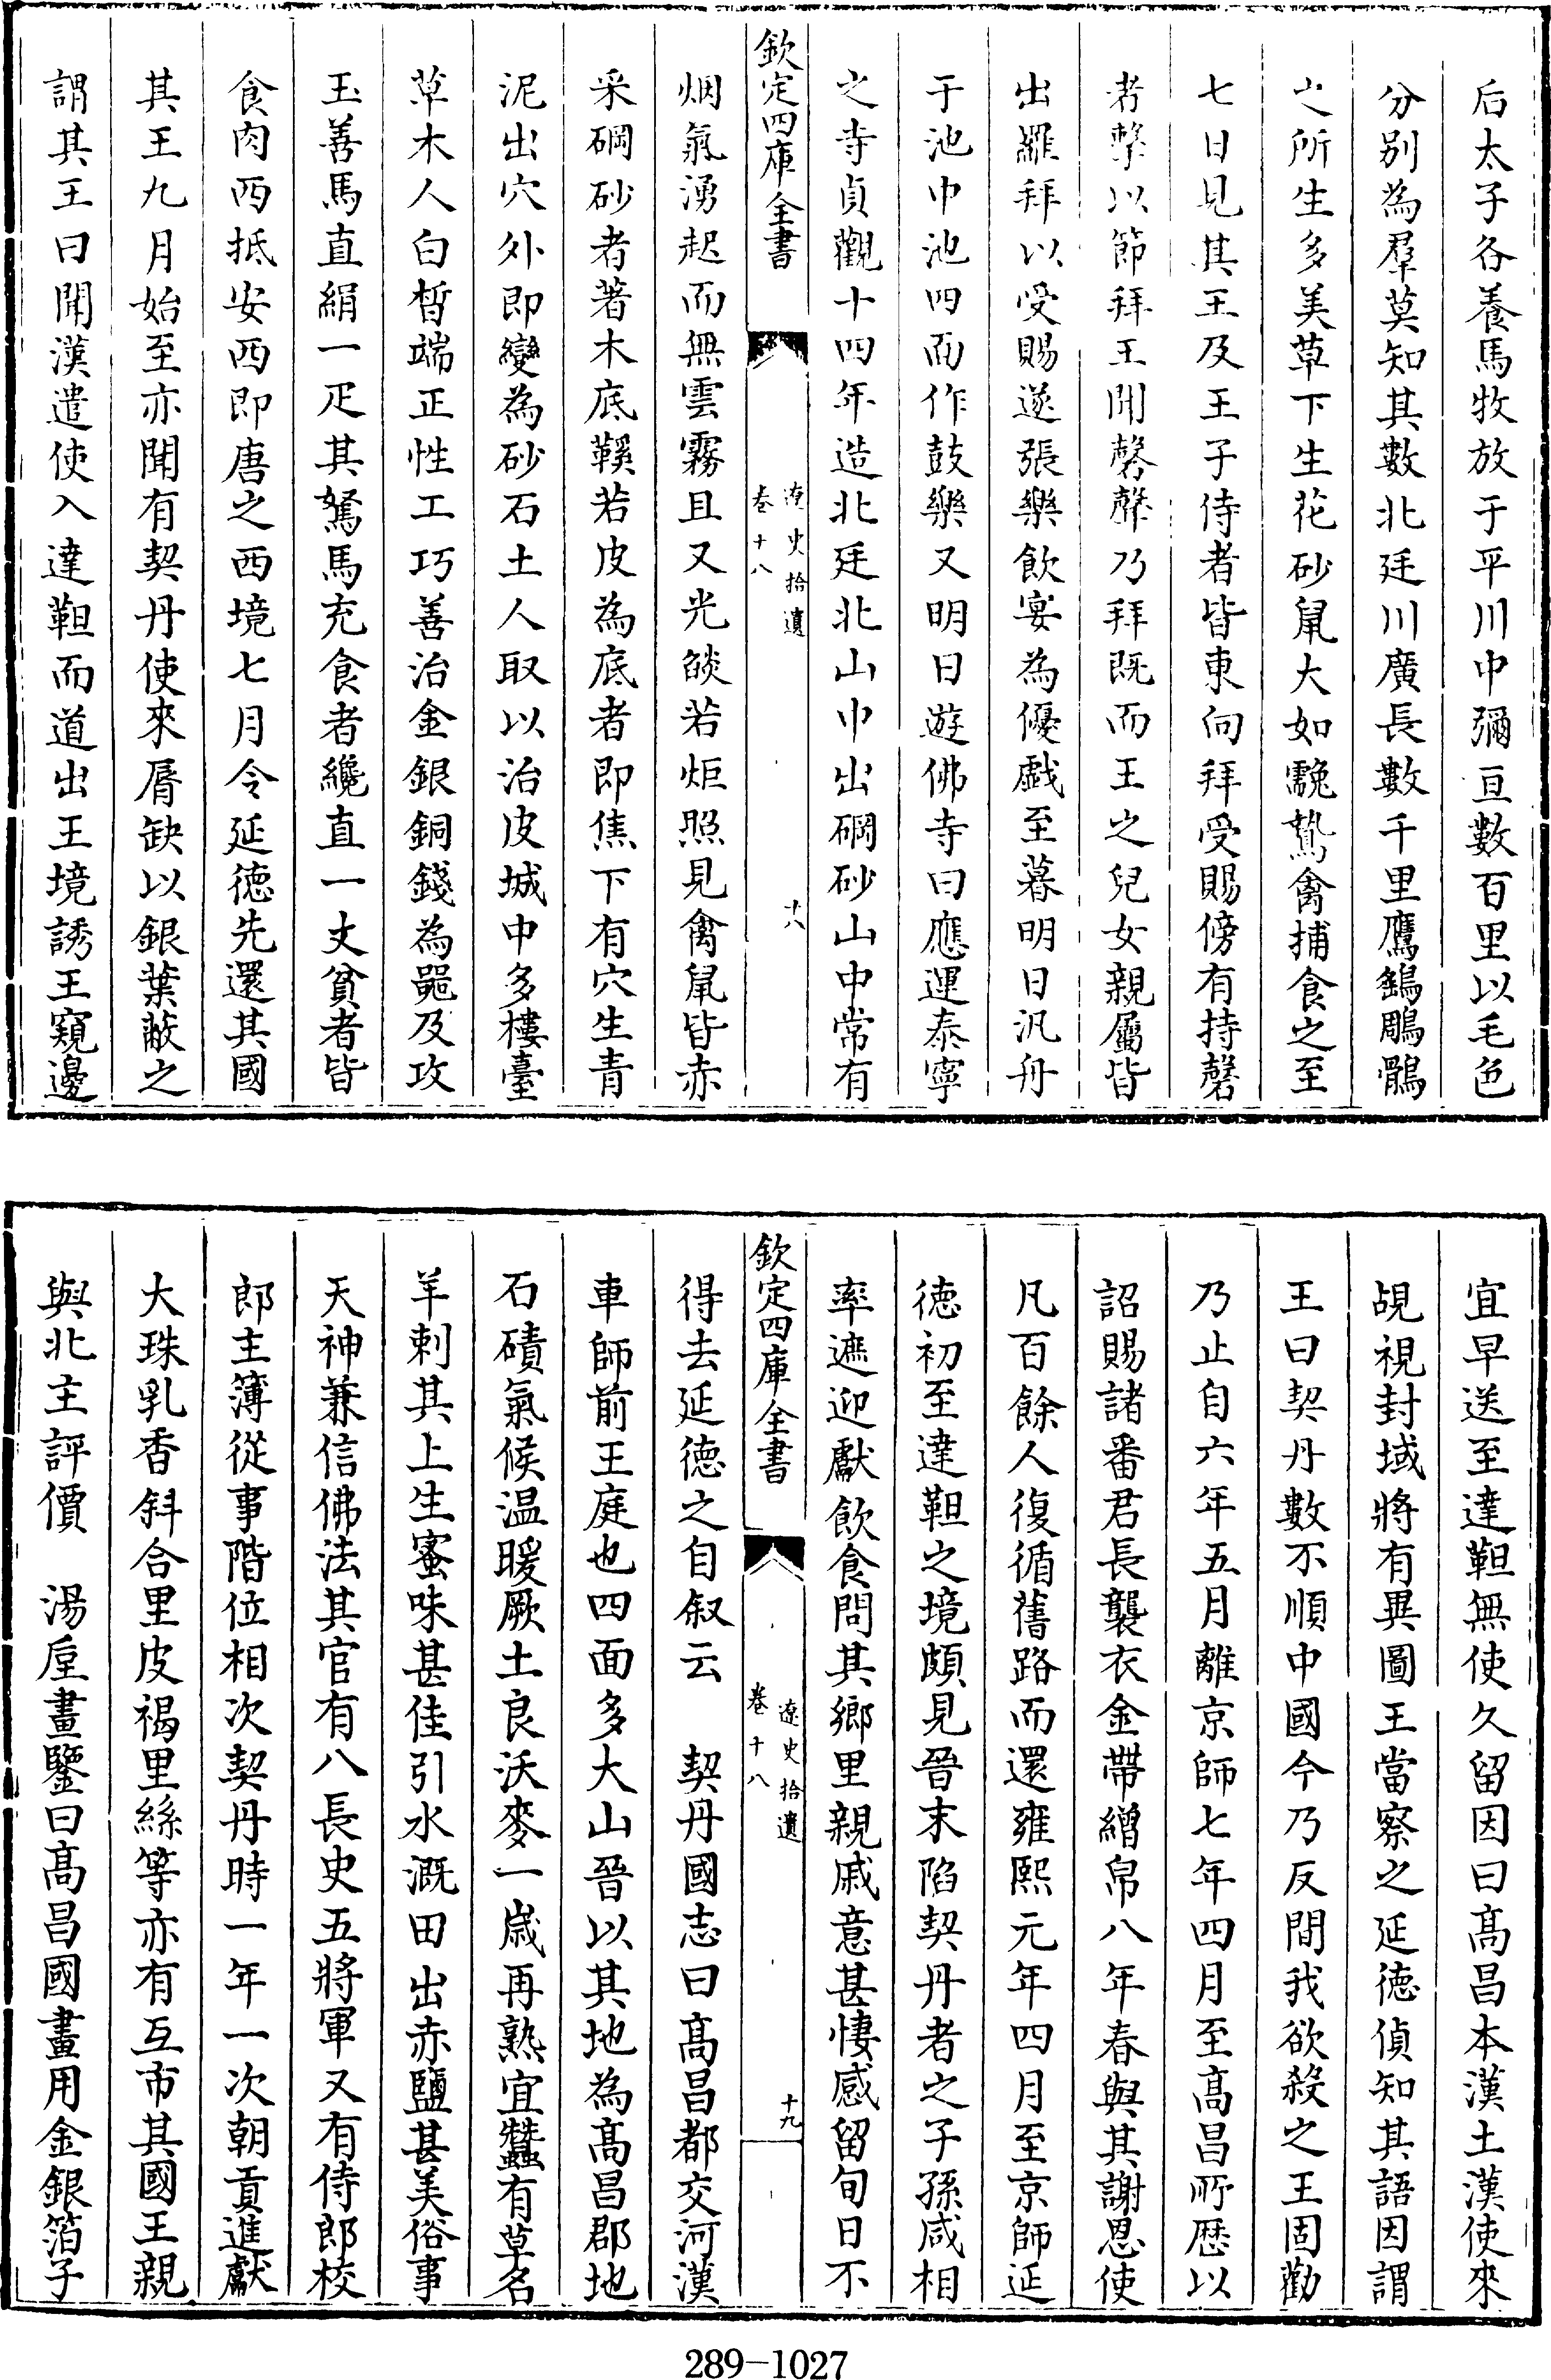 后太子各養馬牧放于平川中彌亘數百里以毛色
分别為羣莫知其數北廷川廣長數千里鷹鷂鵰鶻
之所生多美草下生花砂鼠大如毚鷙禽捕食之至
七日見其王及王子侍者皆東向拜受賜傍有持磬
者擊以節拜王聞磬聲乃拜既而王之兒女親屬皆
出羅拜以受賜遂張樂飲宴為優戲至暮明日汎舟
于池中池四而作鼓樂又明日遊佛寺曰應運泰寧
之寺貞觀十四年造北廷北山中出碙砂山中常有
欽定四庫全書
遼史拾遺
卷十八
十八
烟氣湧起而無雲霧且又光燄若炬照見禽鼠皆赤
采碙砂者著木底鞵若皮為底者即焦下有穴生青
泥出穴外即變為砂石土人取以治皮城中多樓臺
草木人白皙端正性工巧善治金銀銅錢為噐及攻
玉善馬直絹一疋其駑馬充食者纔直一丈貧者皆
食肉西抵安西即唐之西境七月令延德先還其國
其王九月始至亦聞有契丹使來脣缺以銀葉蔽之
謂其王曰聞漢遣使入達靼而道出王境誘王窺邊
宜早送至達靼無使久留因曰髙昌本漢土漢使來
覘視封域將有異圖王當察之延德偵知其語因謂
王曰契丹數不順中國今乃反間我欲殺之王固勸
乃止自六年五月離京師七年四月至髙昌所歴以
詔賜諸番君長襲衣金帶繒帛八年春與其謝恩使
凡百餘人復循舊路而還雍熙元年四月至京師延
德初至達靼之境頗見晉末陷契丹者之子孫咸相
率遮迎獻飲食問其鄉里親戚意甚悽感留旬日不
欽定四庫全書
遼史拾遺
卷十八
十九
得去延德之自叙云　契丹國志曰髙昌都交河漢
車師前王庭也四面多大山晉以其地為髙昌郡地
石磧氣候温暖厥土良沃麥一歲再熟宜蠶有草名
羊刺其上生蜜味甚佳引水溉田出赤鹽甚美俗事
天神兼信佛法其官有八長史五將軍又有侍郎校
郎主簿從事階位相次契丹時一年一次朝貢進獻
大珠乳香斜合里皮褐里絲等亦有互市其國王親
與北主評價　湯垕畫鑒曰髙昌國畫用金銀箔子
289-1027